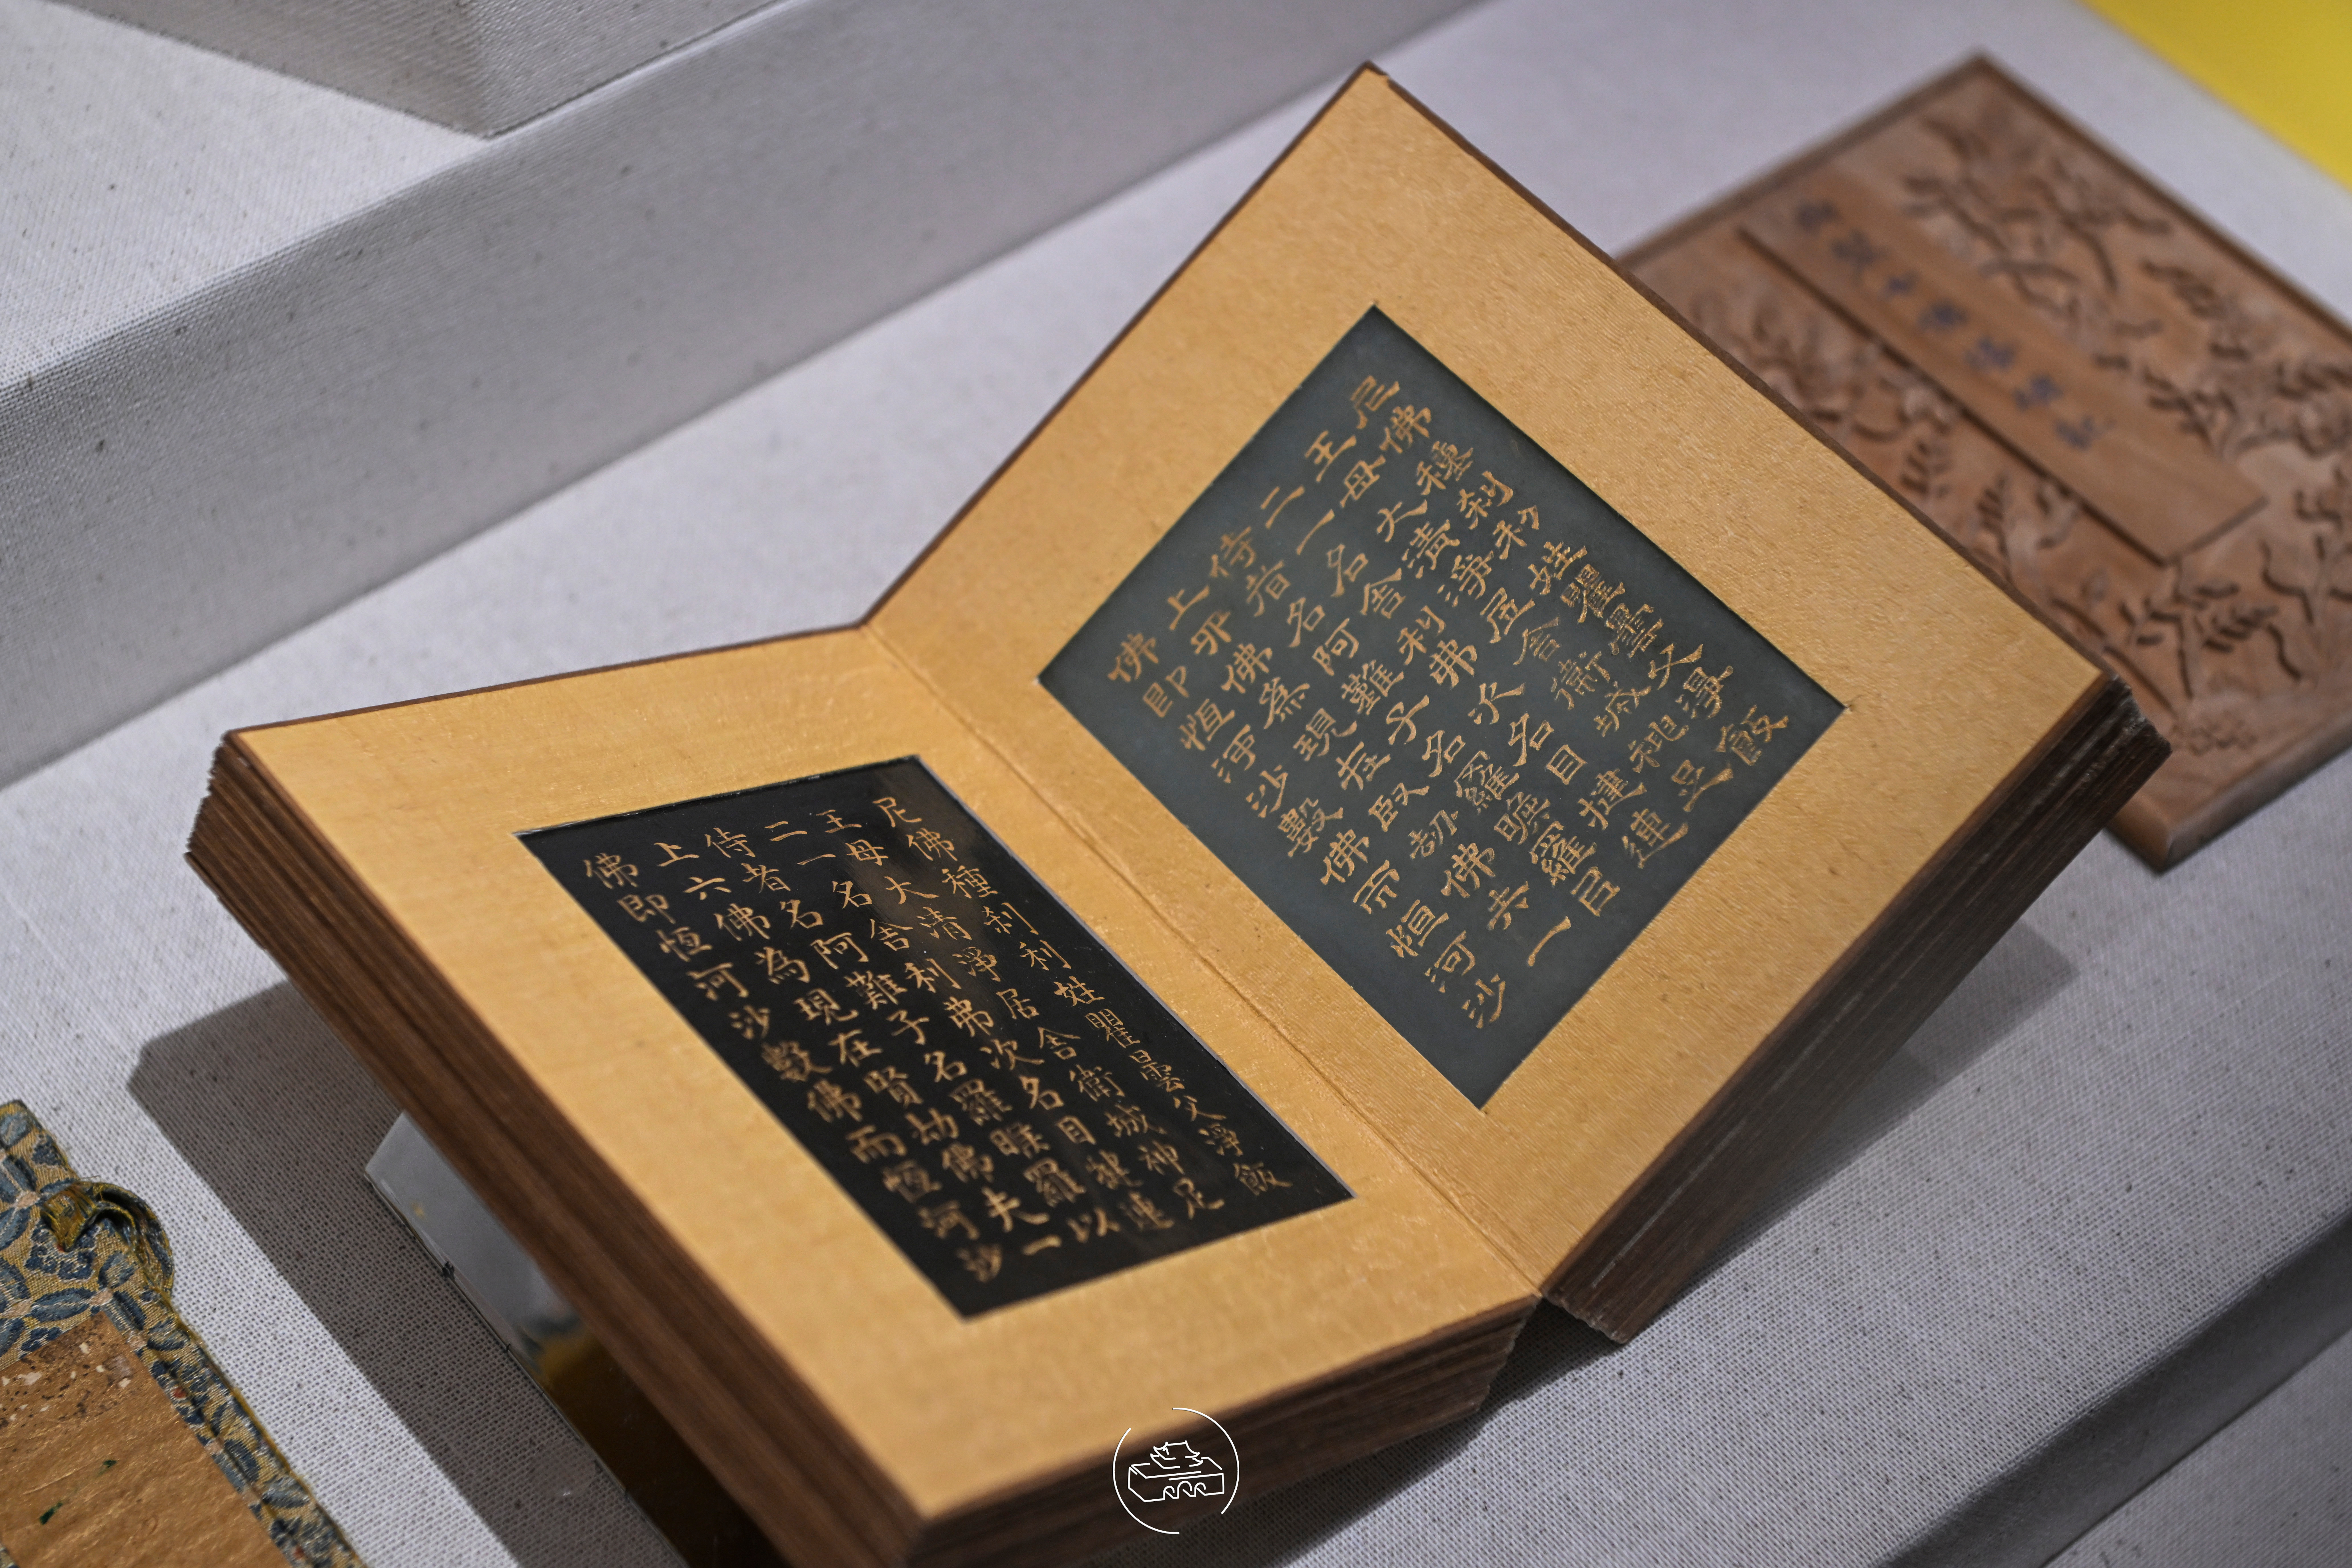 尼佛種刹利姓瞿曇父淨飯
王母大清淨居舍衛城神足
二一名舍利弗次名目揵連
侍者名阿難子名羅睺羅已
上佛為現在賢劫佛共一
佛即恒河沙數佛而恒河沙
尼佛種刹利姓瞿曇父淨飯
王母大清淨居舍衛城神足
二一名舍利弗次名目揵連
侍者名阿難子名羅睺羅以
上六佛為現在賢劫佛夫一
佛即恒河沙數佛而恒河沙